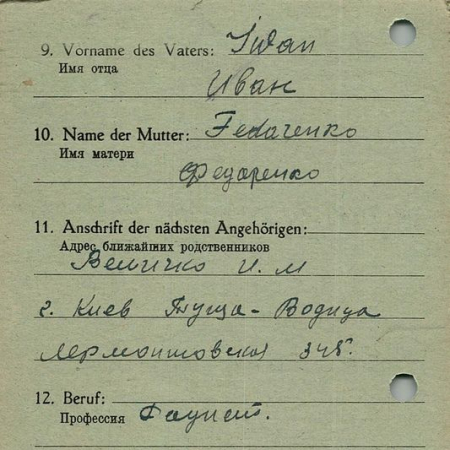 9. Vorname des Vaters: Iwan
Имя отца
Иван
10. Name der Mutter: Fedarenko
Имя матери
Федаренко
11. Anschrift der nächsten Angehörigen:
Адрес ближайших родственников
Величко И. М
г. Киев Пуща-Водица
Лермонтовская 34б.
12. Beruf:
Профессия